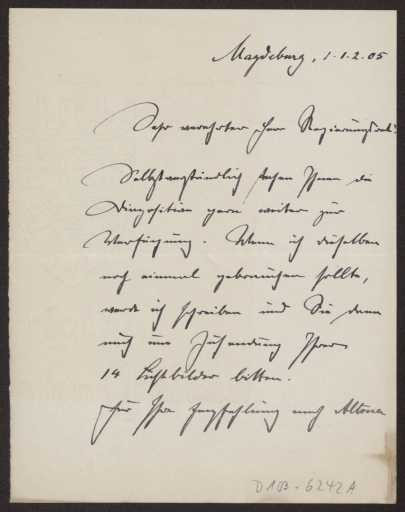 Magdeburg, 1.1.2.05
Sehr verehrter Herr Regierungsrat!
Selbstverständlich stehen Ihnen die
Diapositive gern weiter zur
Verfügung. Wenn ich dieselben
noch einmal gebrauchen sollte,
werde ich schreiben und Sie dann
auch um Zusendung Ihrer
14 Lichtbilder bitten.
Für Ihre Empfehlung nach Altona
D1B-6242A